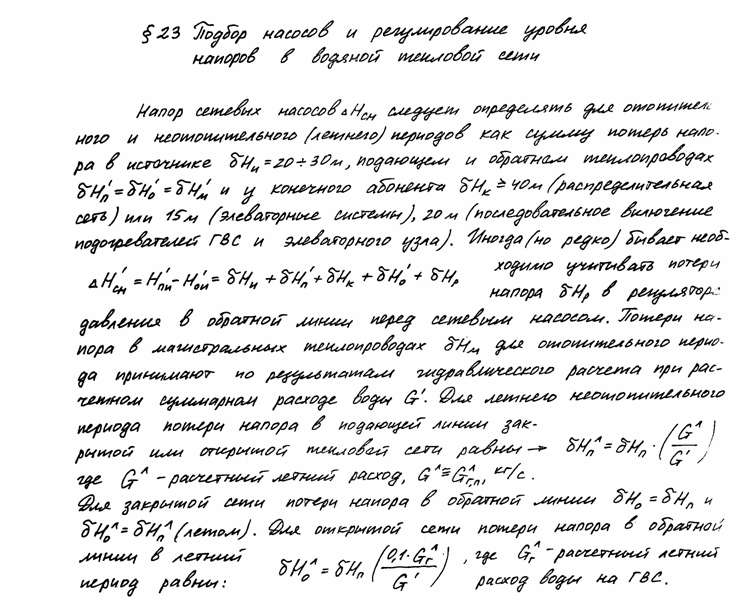 § 23 Подбор насосов и регулирование уровня
напоров в водяной тепловой сети
Напор сетевых насосов ΔHсн следует определять для отопител
ного и неотопительного (летнего) периодов как сумму потерь напо-
ра в источнике δHи = 20 ÷ 30 м, подающем и обратном теплопроводах
δHп' = δHо' = δHм' и у конечного абонента δHк ≥ 40 м (распределительная
сеть) или 15 м (элеваторные системы), 20 м (последовательное включение
подогревателей ГВС и элеваторного узла). Иногда (но редко) бывает необ-
ΔHсн' = Hпи' - Hои' = δHи + δHп' + δHк + δHо' + δHр ходимо учитывать потери
напора δHр в регуляторе
давления в обратной линии перед сетевым насосом. Потери на-
пора в магистральных теплопроводах δHм для отопительного перио-
да принимают по результатам гидравлического расчета при рас-
четном суммарном расходе воды G'. Для летнего неотопительного
периода потери напора в подающей линии зак-
рытой или открытой тепловой сети равны → δHп^л = δHп · (G^л / G')
где G^л - расчетный летний расход, G^л ≡ Gгп^л, кг/с.
Для закрытой сети потери напора в обратной линии δHо = δHп и
δHо^л = δHп^л (летом). Для открытой сети потери напора в обратной
линии в летний δHо^л = δHп (0,1 · Gг^л / G'), где Gг^л - расчетный летний
период равны: расход воды на ГВС.